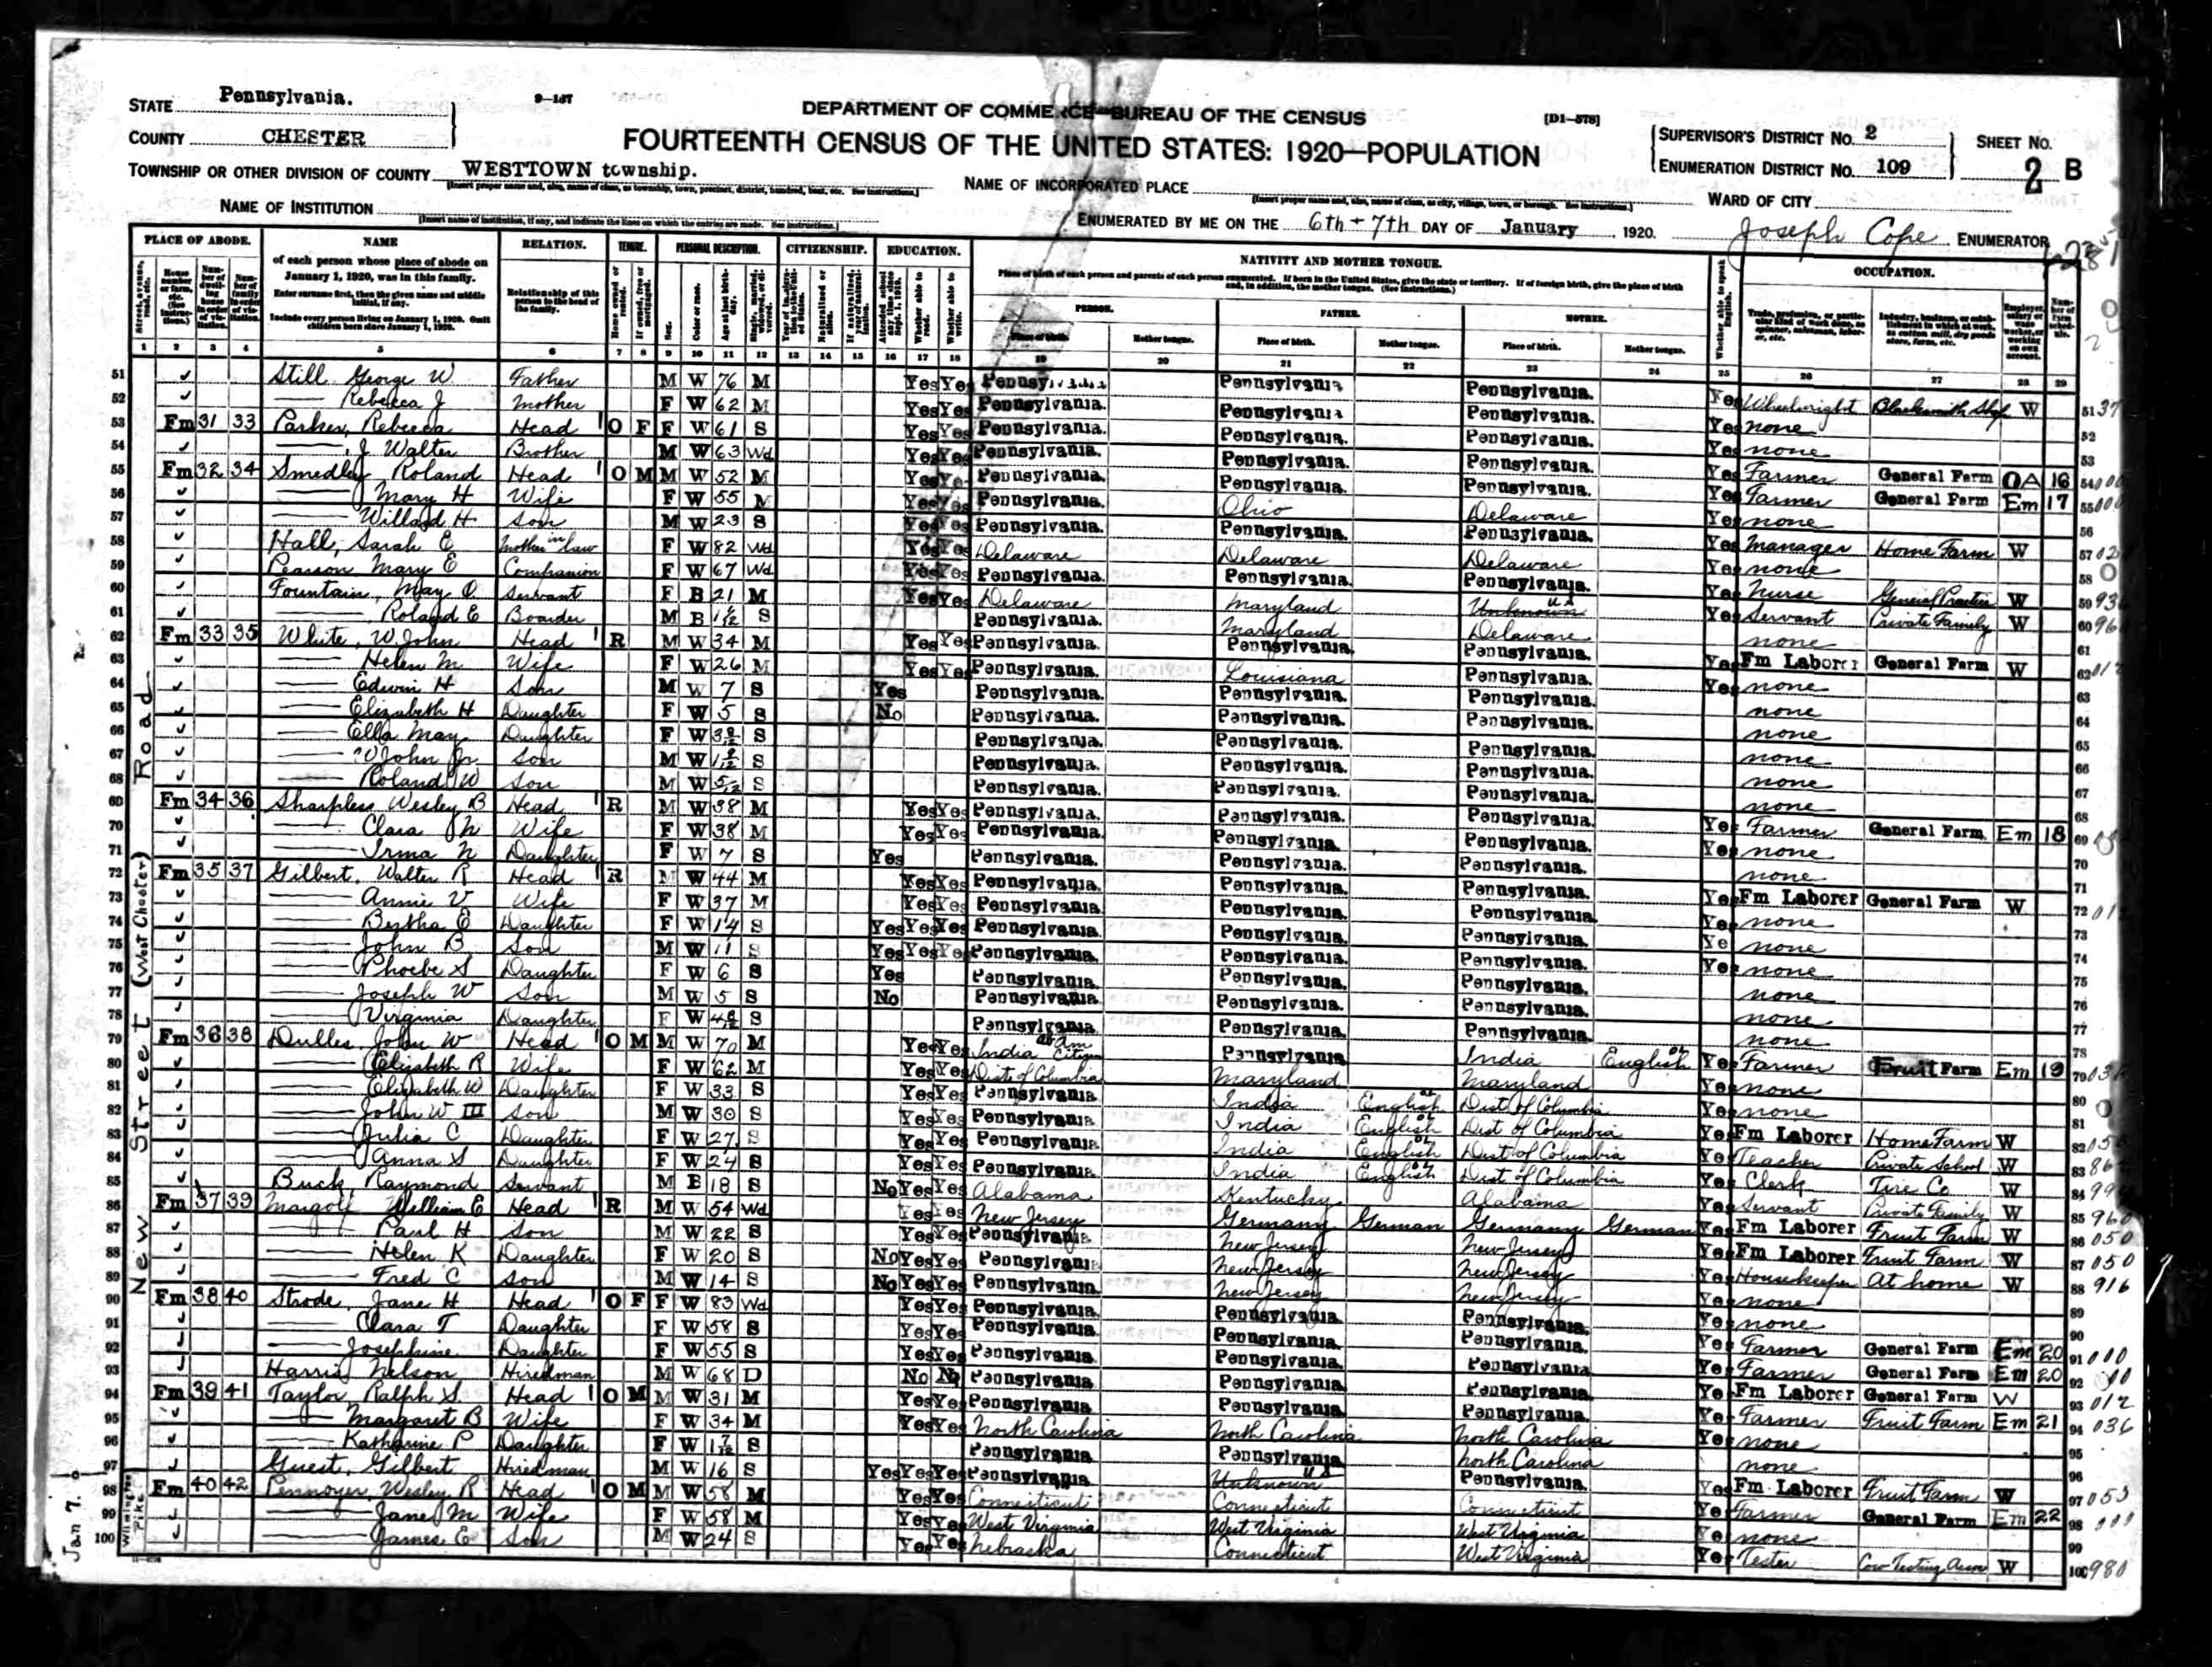 STATE Pennsylvania.
9-137
DEPARTMENT OF COMMERCE—BUREAU OF THE CENSUS
[D1-578]
COUNTY CHESTER
FOURTEENTH CENSUS OF THE UNITED STATES: 1920—POPULATION
SUPERVISOR'S DISTRICT NO. 2
SHEET NO.
ENUMERATION DISTRICT NO. 109
2 B
TOWNSHIP OR OTHER DIVISION OF COUNTY WESTTOWN township.
NAME OF INCORPORATED PLACE
WARD OF CITY
NAME OF INSTITUTION
ENUMERATED BY ME ON THE 6th + 7th DAY OF January, 1920. Joseph Cope, ENUMERATOR
PLACE OF ABODE. NAME RELATION. TENURE. PERSONAL DESCRIPTION. CITIZENSHIP. EDUCATION. NATIVITY AND MOTHER TONGUE. OCCUPATION.
of each person whose place of abode on January 1, 1920, was in this family.
PERSON. FATHER. MOTHER.
1 2 3 4 5 6 7 8 9 10 11 12 13 14 15 16 17 18 19 20 21 22 23 24 25 26 27 28 29
51 Still George W Father M W 76 M Yes Yes Pennsylvania Pennsylvania Pennsylvania. Yes Wheelwright Blacksmith Shop W
52 Rebecca J Mother F W 62 M Yes Yes Pennsylvania. Pennsylvania Pennsylvania. Yes none
53 Fm 31 33 Parker, Rebecca Head 1 O F F W 61 S Yes Yes Pennsylvania. Pennsylvania. Pennsylvania. Yes none
54 J Walter Brother M W 63 Wd Yes Yes Pennsylvania. Pennsylvania. Pennsylvania. Yes Farmer General Farm OA 16
55 Fm 32 34 Smedley Roland Head 1 O M M W 52 M Yes Yes Pennsylvania. Pennsylvania. Pennsylvania. Yes Farmer General Farm Em 17
56 Mary H Wife F W 55 M Yes Yes Pennsylvania. Ohio Delaware Yes none
57 Willard H Son M W 23 S Yes Yes Pennsylvania. Pennsylvania. Pennsylvania. Yes Manager Home Farm W
58 Hall, Sarah E Mother in law F W 82 Wd Yes Yes Delaware Delaware Delaware Yes none
59 Pearson Mary E Companion F W 67 Wd Yes Yes Pennsylvania. Pennsylvania. Pennsylvania. Yes Nurse General Practice W
60 Fountain, May O Servant F B 21 M Yes Yes Delaware Maryland Unknown Yes Servant Private Family W
61 Roland E Boarder M B S Pennsylvania. Maryland Delaware none
62 Fm 33 35 White, W. John Head 1 R M W 34 M Yes Yes Pennsylvania. Pennsylvania. Pennsylvania. Yes Fm Laborer General Farm W
63 Helen M Wife F W 26 M Yes Yes Pennsylvania. Louisiana Pennsylvania. Yes none
64 Edwin H Son M W 7 S Yes Pennsylvania. Pennsylvania. Pennsylvania. none
65 Elizabeth H Daughter F W 5 S No Pennsylvania. Pennsylvania. Pennsylvania. none
66 Ella May Daughter F W S Pennsylvania. Pennsylvania. Pennsylvania. none
67 W John Jr Son M W S Pennsylvania. Pennsylvania. Pennsylvania. none
68 Roland W Son M W 5/12 S Pennsylvania. Pennsylvania. Pennsylvania. none
69 Fm 34 36 Sharpless Wesley B Head 1 R M W 38 M Yes Yes Pennsylvania. Pennsylvania. Pennsylvania. Yes Farmer General Farm Em 18
70 Clara M Wife F W 38 M Yes Yes Pennsylvania. Pennsylvania. Pennsylvania. Yes none
71 Irma N Daughter F W 7 S Yes Pennsylvania. Pennsylvania. Pennsylvania. none
72 Fm 35 37 Gilbert, Walter R Head 1 R M W 44 M Yes Yes Pennsylvania. Pennsylvania. Pennsylvania. Yes Fm Laborer General Farm W
73 Annie V Wife F W 37 M Yes Yes Pennsylvania. Pennsylvania. Pennsylvania. Yes none
74 Bertha E Daughter F W 14 S Yes Yes Yes Pennsylvania. Pennsylvania. Pennsylvania. Ye none
75 John B Son M W 11 S Yes Yes Yes Pennsylvania. Pennsylvania. Pennsylvania. Yes none
76 Phoebe S Daughter F W 6 S Yes Pennsylvania. Pennsylvania. Pennsylvania. none
77 Joseph W Son M W 5 S No Pennsylvania. Pennsylvania. Pennsylvania. none
78 Virginia Daughter F W S Pennsylvania Pennsylvania. Pennsylvania. none
79 Fm 36 38 Dulles, John W Head 1 O M M W 70 M Yes Yes India Am Citizen Pennsylvania India English Yes Farmer Fruit Farm Em 19
80 Elizabeth R Wife F W 62 M Yes Yes Dist of Columbia Maryland Maryland Yes none
81 Elizabeth W Daughter F W 33 S Yes Yes Pennsylvania India English Dist of Columbia Yes none
82 John W III Son M W 30 S Yes Yes Pennsylvania India English Dist of Columbia Yes Fm Laborer Home Farm W
83 Julia C Daughter F W 27 S Yes Yes Pennsylvania India English Dist of Columbia Yes Teacher Private School W
84 Anna S Daughter F W 24 S Yes Yes Pennsylvania. India English Dist of Columbia Yes Clerk Tire Co W
85 Buck, Raymond Servant M B 18 S No Yes Yes Alabama Kentucky Alabama Yes Servant Private Family W
86 Fm 37 39 William E Head 1 R M W 54 Wd Yes Yes New Jersey Germany German Germany German Yes Fm Laborer Fruit Farm W
87 Paul H Son M W 22 S Yes Yes Pennsylvania New Jersey New Jersey Yes Fm Laborer Fruit Farm W
88 Helen K Daughter F W 20 S No Yes Yes Pennsylvania New Jersey New Jersey Yes Housekeeper At home W
89 Fred C Son M W 14 S No Yes Yes Pennsylvania New Jersey New Jersey Yes none
90 Fm 38 40 Strode, Jane H Head 1 O F F W 83 Wd Yes Yes Pennsylvania. Pennsylvania. Pennsylvania. Yes none
91 Clara T Daughter F W 58 S Yes Yes Pennsylvania. Pennsylvania. Pennsylvania. Yes Farmer General Farm Em 20
92 Josephine Daughter F W 55 S Yes Yes Pennsylvania. Pennsylvania. Pennsylvania Yes Farmer General Farm Em 20
93 Harris Nelson Hiredman M W 68 D No No Pennsylvania. Pennsylvania. Pennsylvania. Ye Fm Laborer General Farm W
94 Fm 39 41 Taylor, Ralph S. Head 1 O M M W 31 M Yes Yes Pennsylvania. Pennsylvania. Pennsylvania. Yes Farmer Fruit Farm Em 21
95 Margaret B Wife F W 34 M Yes Yes North Carolina North Carolina North Carolina Yes none
96 Katharine P Daughter F W S Pennsylvania. Pennsylvania. North Carolina none
97 Guest, Gilbert Hiredman M W 16 S Yes Yes Yes Pennsylvania Unknown Pennsylvania. Yes Fm Laborer Fruit Farm W
98 Fm 40 42 Pennoyer, Wesley R Head 1 O M M W 58 M Yes Yes Connecticut Connecticut Connecticut Yes Farmer General Farm Em 22
99 Jane M Wife F W 58 M Yes Yes West Virginia West Virginia West Virginia Yes none
100 James E Son M W 24 S Yes Yes Nebraska Connecticut West Virginia Yes Tester Cow Testing Assn W
New Street (West Chester) Road
Wilmington Pike
Jan 7.